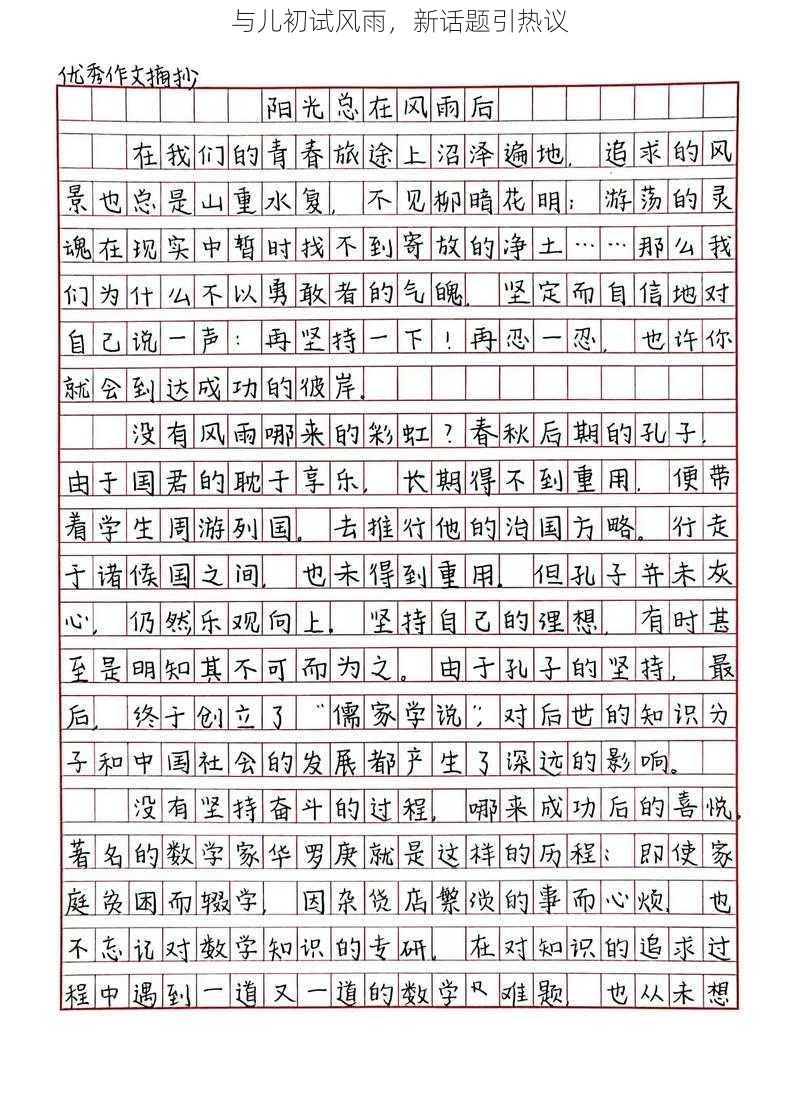 与儿初试风雨，新话题引热议
优秀作文摘抄
阳光总在风雨后
在我们的青春旅途上沼泽遍地，追求的风
景也总是山重水复，不见柳暗花明；游荡的灵
魂在现实中暂时找不到寄放的净土……那么我
们为什么不以勇敢者的气魄，坚定而自信地对
自己说一声：再坚持一下！再忍一忍，也许你
就会到达成功的彼岸。
没有风雨哪来的彩虹？春秋后期的孔子，
由于国君的耽于享乐，长期得不到重用，便带
着学生周游列国。去推行他的治国方略。行走
于诸侯国之间，也未得到重用。但孔子并未灰
心，仍然乐观向上，坚持自己的理想，有时甚
至是明知其不可而为之。由于孔子的坚持，最
后，终于创立了“儒家学说”，对后世的知识分
子和中国社会的发展都产生了深远的影响。
没有坚持奋斗的过程，哪来成功后的喜悦。
著名的数学家华罗庚就是这样的历程；即使家
庭贫困而辍学，因杂货店繁琐的事而心烦，也
不忘记对数学知识的专研，在对知识的追求过
程中遇到一道又一道的数学难题，也从未想